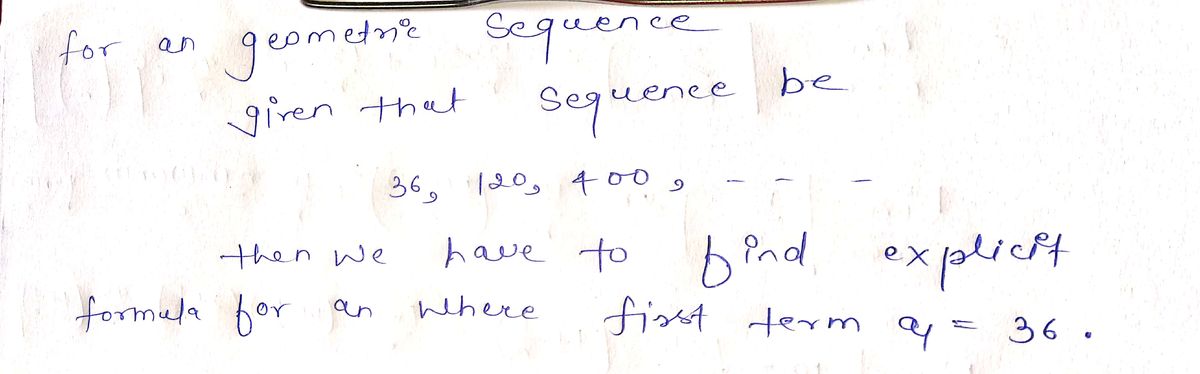 for an geometric sequence
given that sequence be
36, 120, 400, - - -
then we have to find explicit
formula for an where first term a₁ = 36.